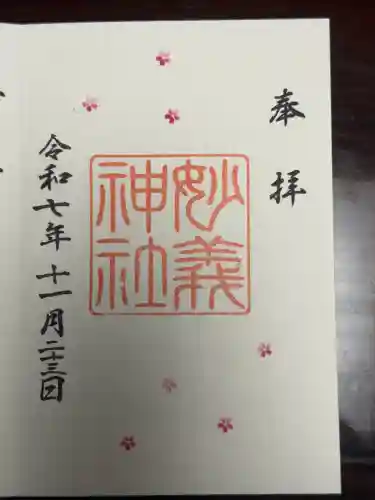 奉拝
妙義
神社
令和七年十一月二十三日